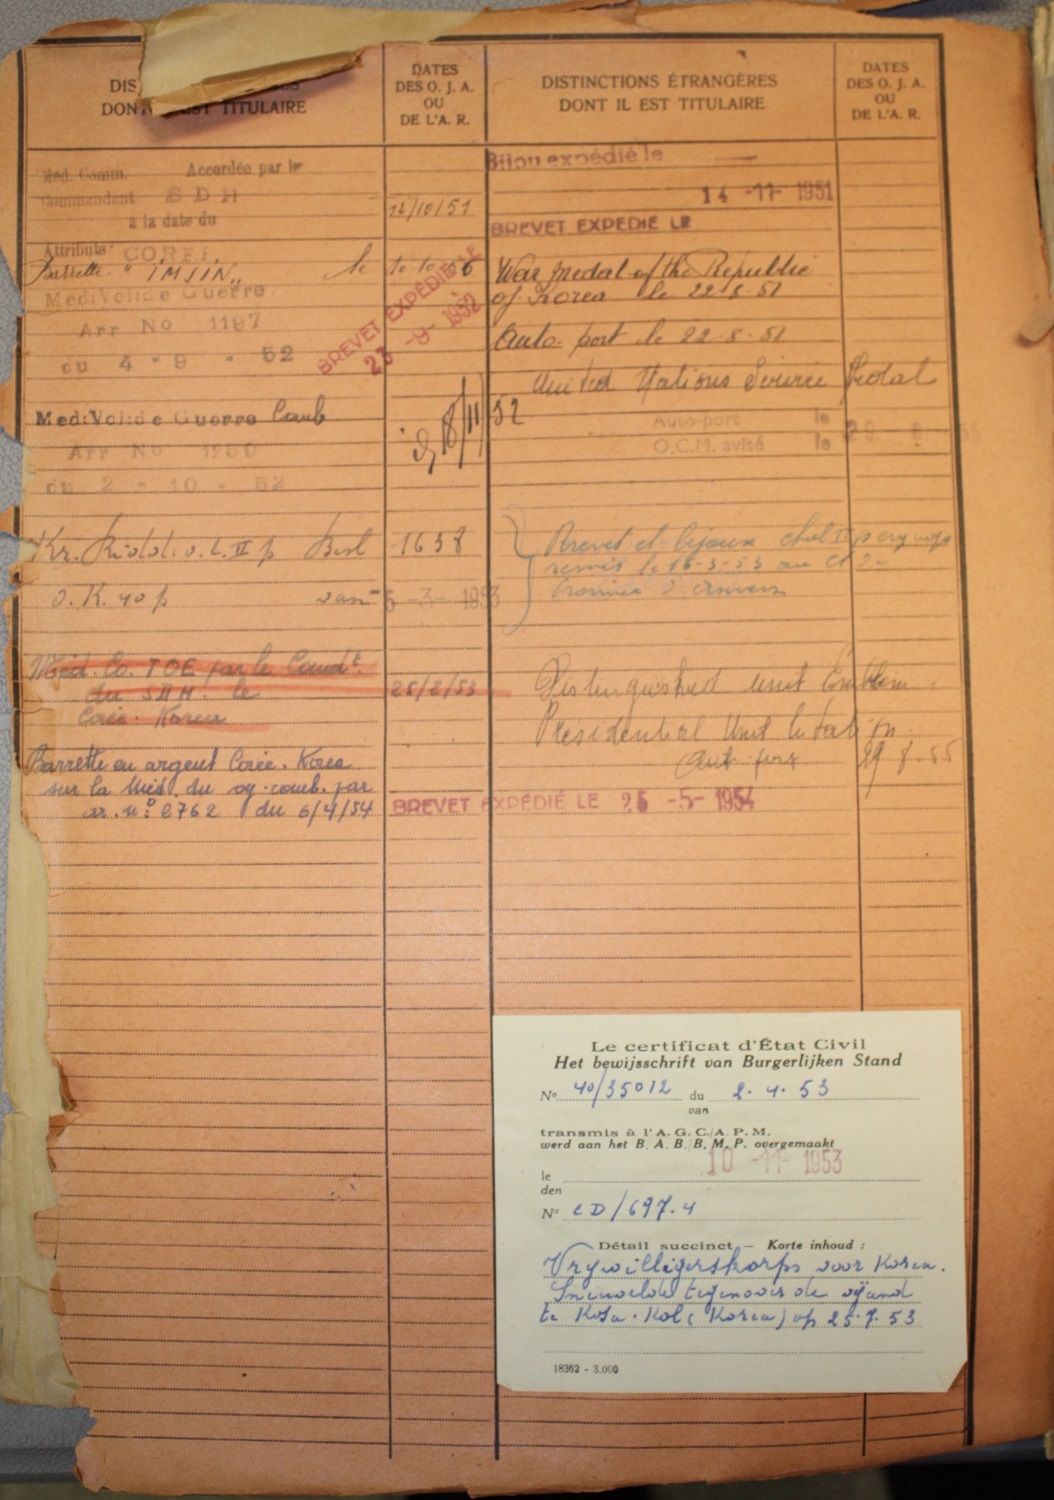 DIS
DONT EST TITULAIRE
DATES
DES O. J. A.
OU
DE L'A. R.
DISTINCTIONS ÉTRANGÈRES
DONT IL EST TITULAIRE
DATES
DES O. J. A.
OU
DE L'A. R.
Méd. Comm. Accordée par le
Commandant SDH
à la date du
12/10/51
Attributs COREE
Barrette "IMJIN" le
Med:Vol:de Guerre
Arr No 1197
du 4 - 9 - 52
BREVET EXPÉDIÉ LE
23 -9- 1952
Med:Vol:de Guerre Comb
Arr No 1250
du 2 - 10 - 52
18/11/52
Kr. Ridd. o. L. II p Besl 1638
o. K. 40 p van 5 -3- 1953
Méd. Co. TOE par le Comdt.
du SDH. le 25/2/53
Corée. Korea
Barrette en argent Corée. Korea
sur la Méd. du comb. par
ar. n° 2762 du 6/4/54
BREVET EXPÉDIÉ LE 25 -5- 1954
Bijou expédié le
14 -11- 1951
BREVET EXPEDIE LE
War medal of the Republic
of Korea le 22-8-51
Auto. port le 22-8-51
United Nations Service Medal
Auto-port le
O.C.M. avisé le
Brevet et bijoux
remis le 16-3-53 au
Distinguished Unit Emblem
Presidential Unit Citation
Aut. port 29.8.55
Le certificat d'État Civil
Het bewijsschrift van Burgerlijken Stand
No 40/35012 du 2. 4. 53
van
transmis à l'A. G. C./A. P. M.
werd aan het B. A. B./B. M. P. overgemaakt
10 -11- 1953
le
den
No CD/697.4
Détail succinct — Korte inhoud :
Vrywilligerskorps voor Korea.
Sneuvelde tegenover de vyand
te Kosa. Kol (Korea) op 25.7.53
18362 - 3.000